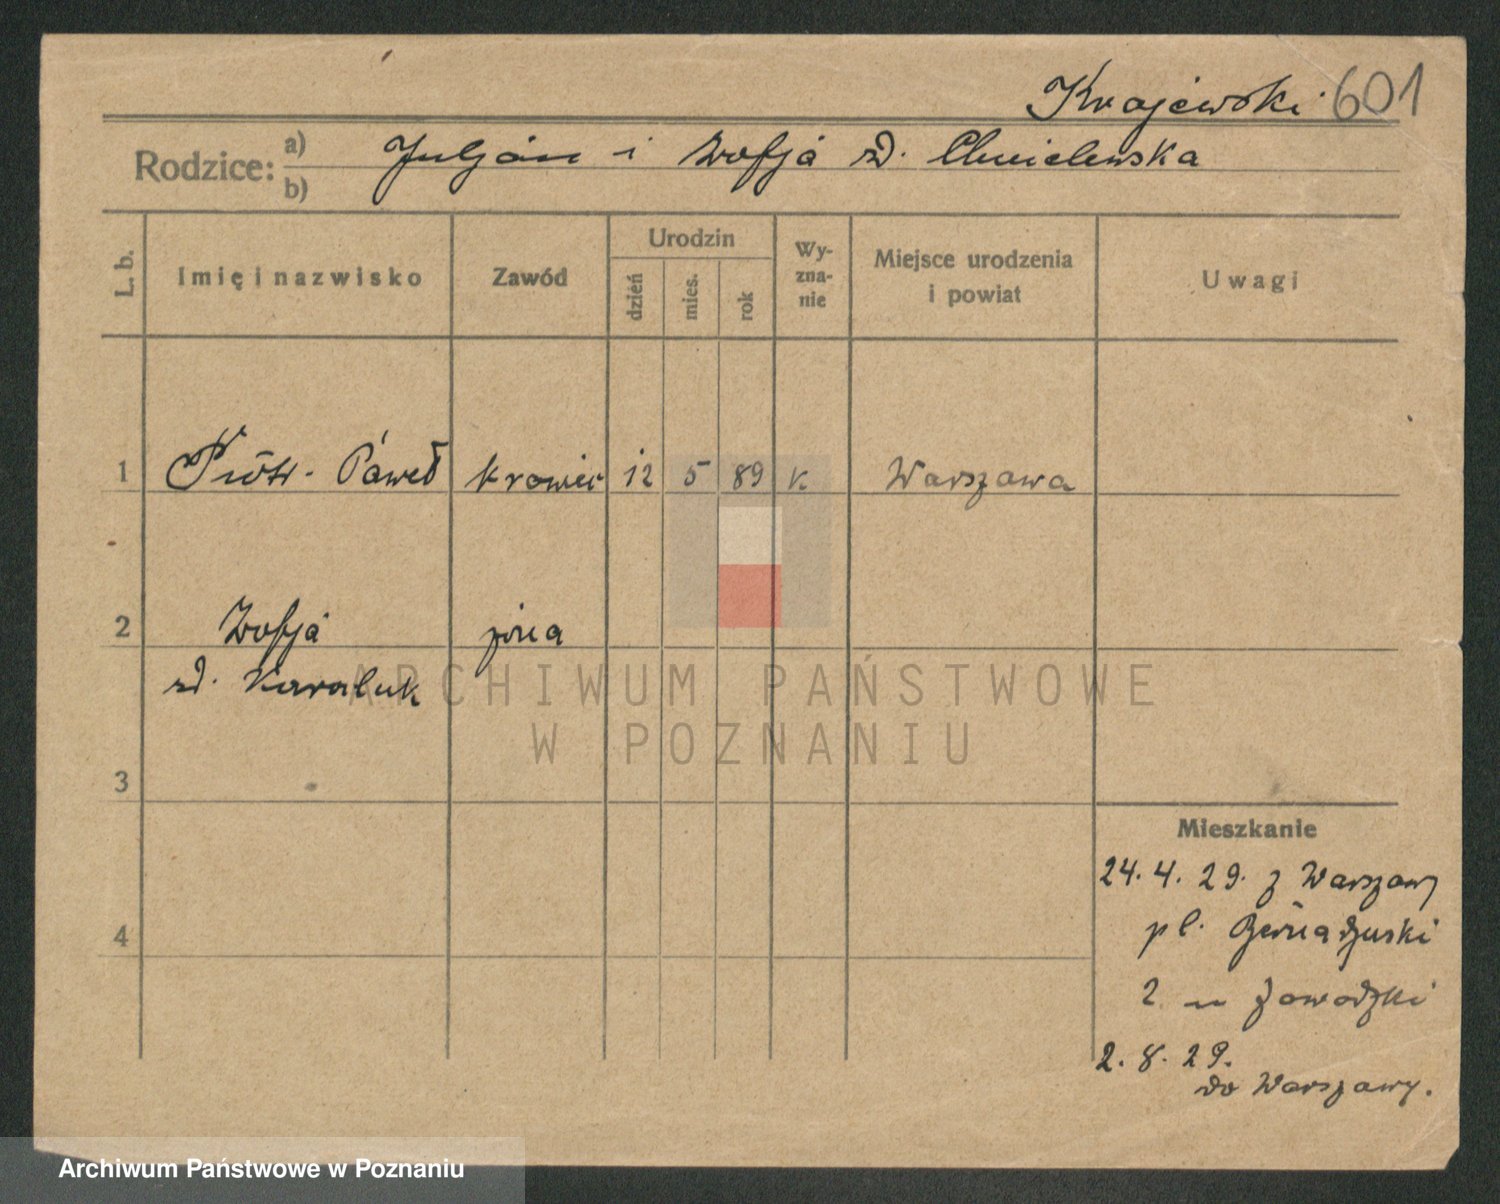 Krajewski 601
Rodzice: a) Juljan i Zofja zd. Chmielewska
b)
L. b. Imię i nazwisko Zawód Urodzin dzień mies. rok Wy-zna-nie Miejsce urodzenia i powiat Uwagi
1 Piotr Paweł krawiec 12 5 89 k Warszawa
2 Zofja żona
zd. Karaluk
ARCHIWUM PAŃSTWOWE
W POZNANIU
3
Mieszkanie
24. 4. 29. z Warszawy
4 pl. Bernadzuski
2 m Zawodzki
2. 8. 29.
do Warszawy.
Archiwum Państwowe w Poznaniu